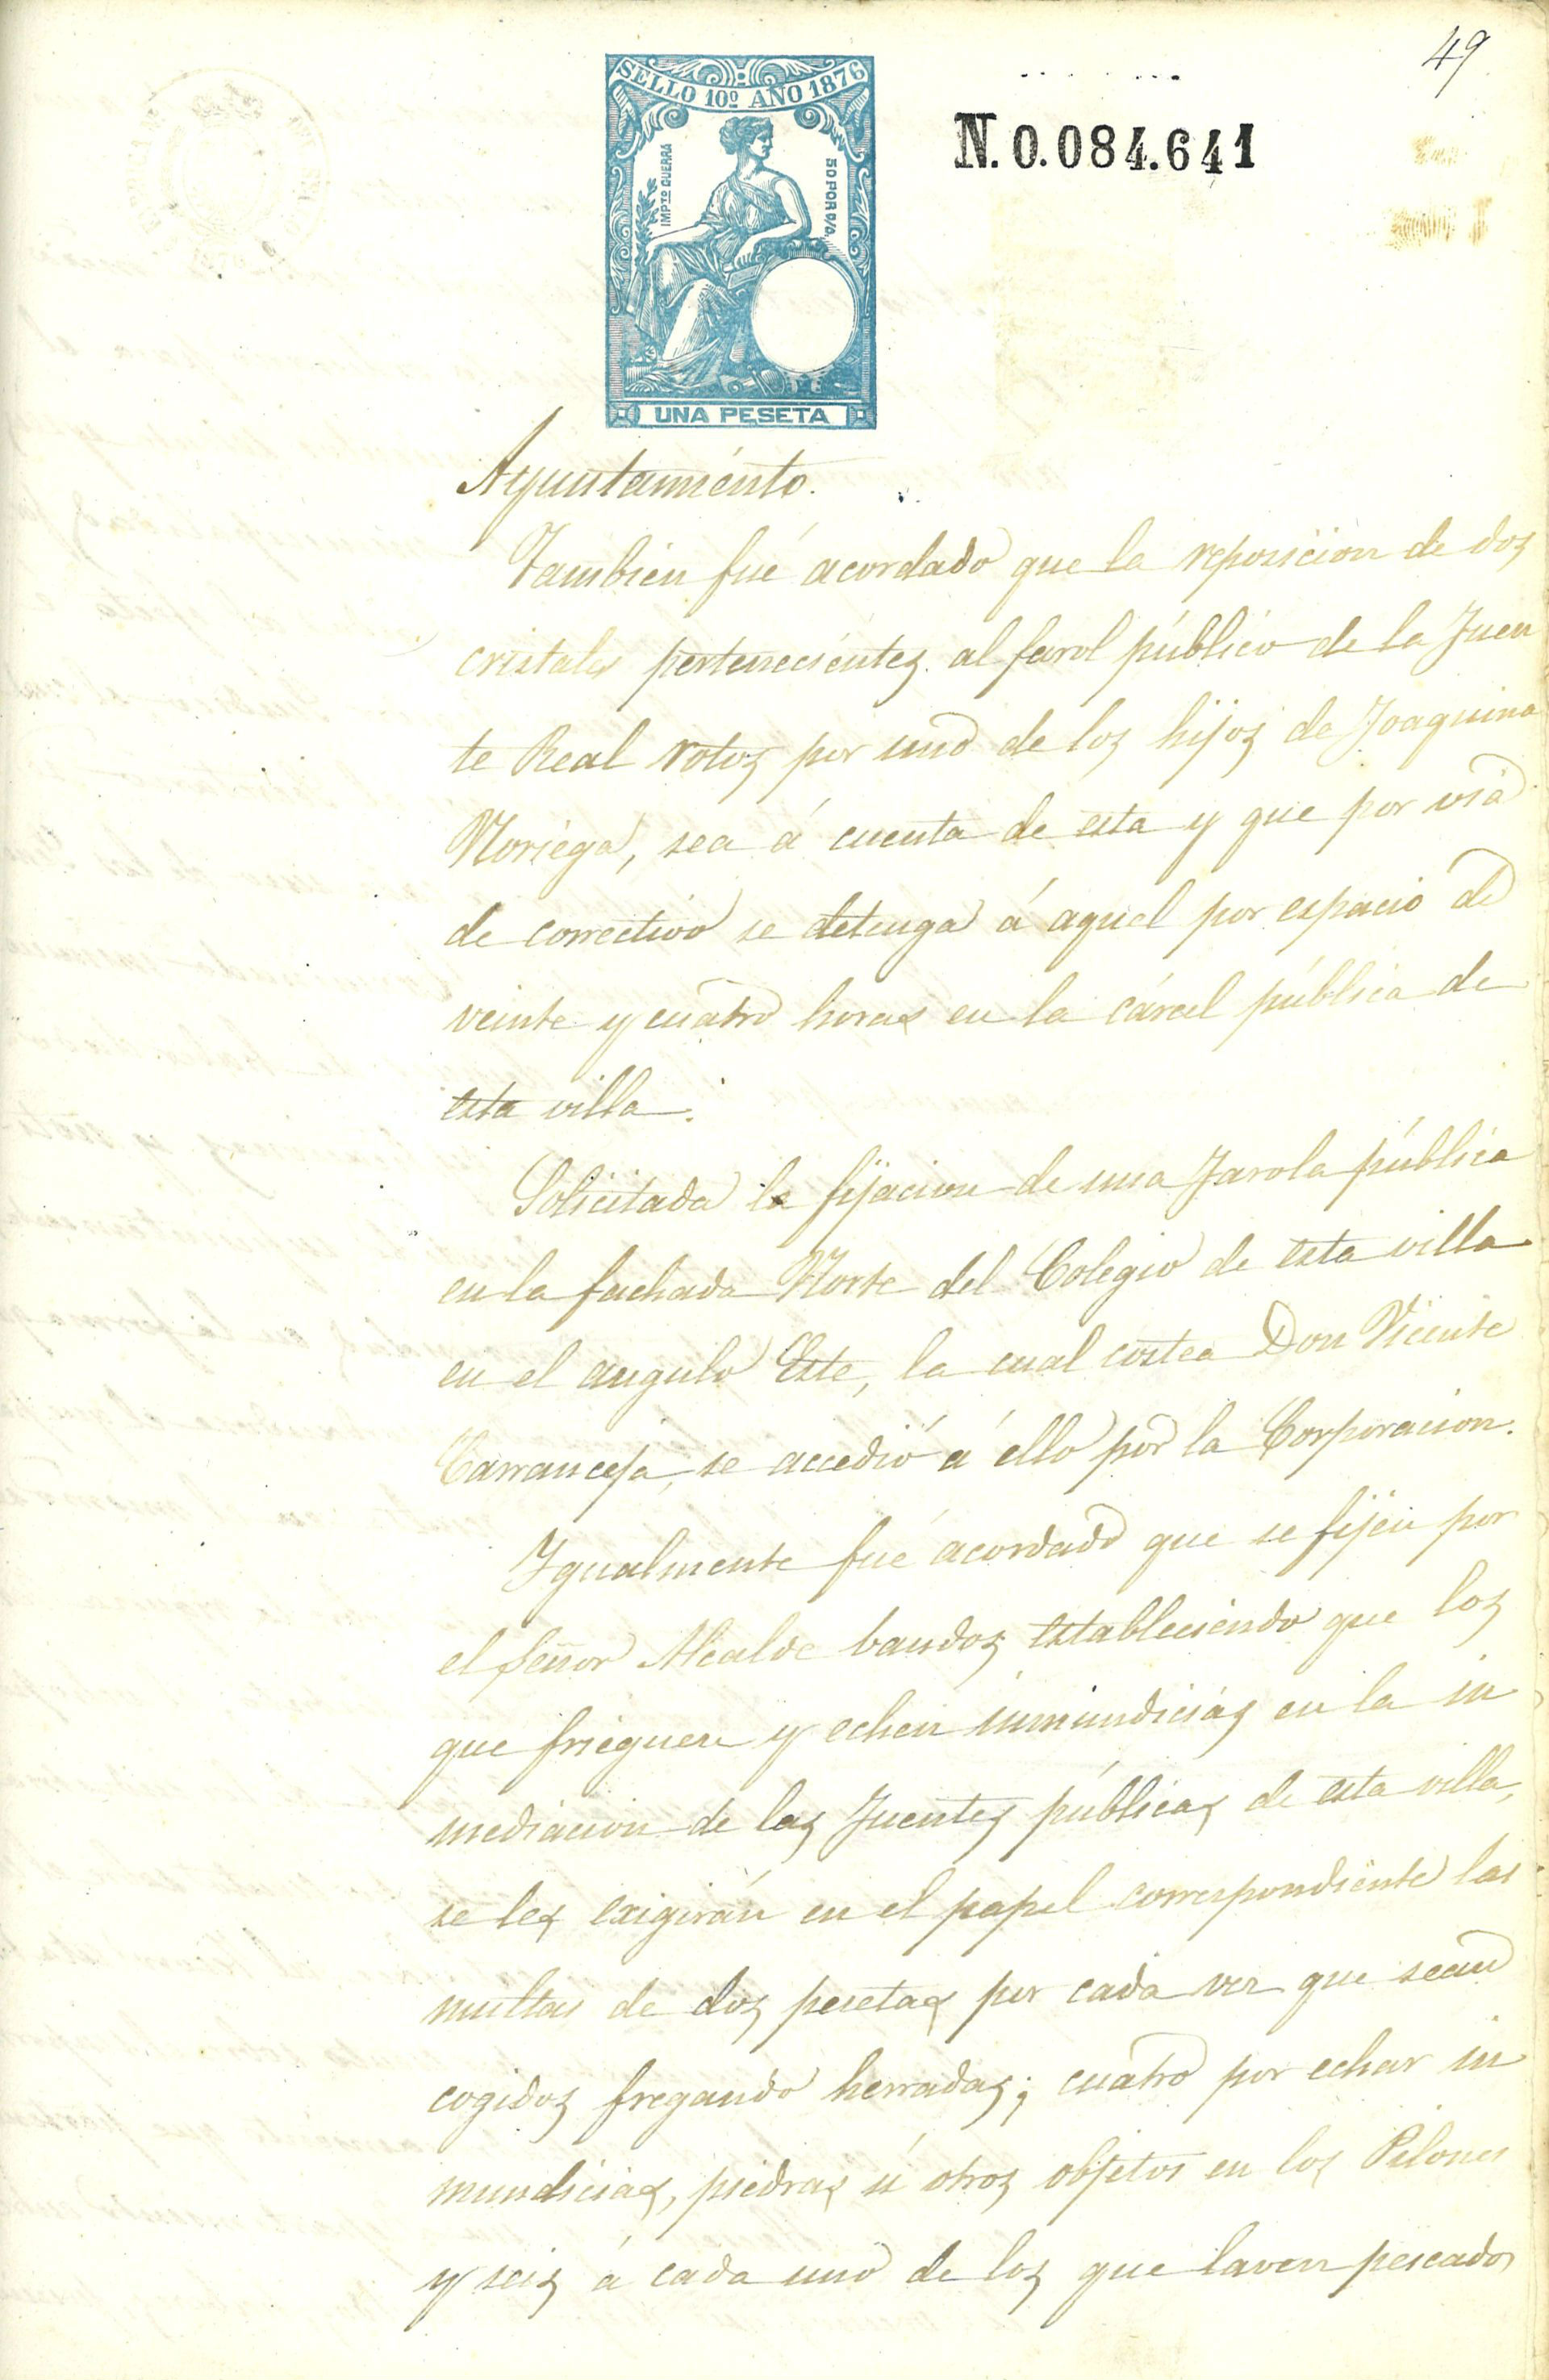 49
SELLO 10º AÑO 1876
IMPTO GUERRA
50 POR 0/0.
N.0.084.641
UNA PESETA
Ayuntamiento.
Tambien fué acordado que la reposicion de dos
cristales pertenecientes al farol público de la Fuen
te Real rotos por uno de los hijos de Joaquina
Noriega, sea á cuenta de esta y que por via
de correctivo se detenga á aquel por espacio de
veinte y cuatro horas en la cárcel pública de
esta villa.
Solicitada la fijacion de una Farola pública
en la fachada Norte del Colegio de esta villa
en el angulo Este, la cual costea Don Vicente
Carranceja, se accedió á ello por la Corporacion.
Igualmente fué acordado que se fijen por
el Señor Alcalde bandos estableciendo que los
que frieguen y echen inmundicias en la in
mediacion de las Fuentes públicas de esta villa,
se les exigirán en el papel correspondiente las
multas de dos pesetas por cada vez que sean
cogidos fregando herradas; cuatro por echar in
mundicias, piedras ú otros objetos en los Pilones
y seis á cada uno de los que laven pescados